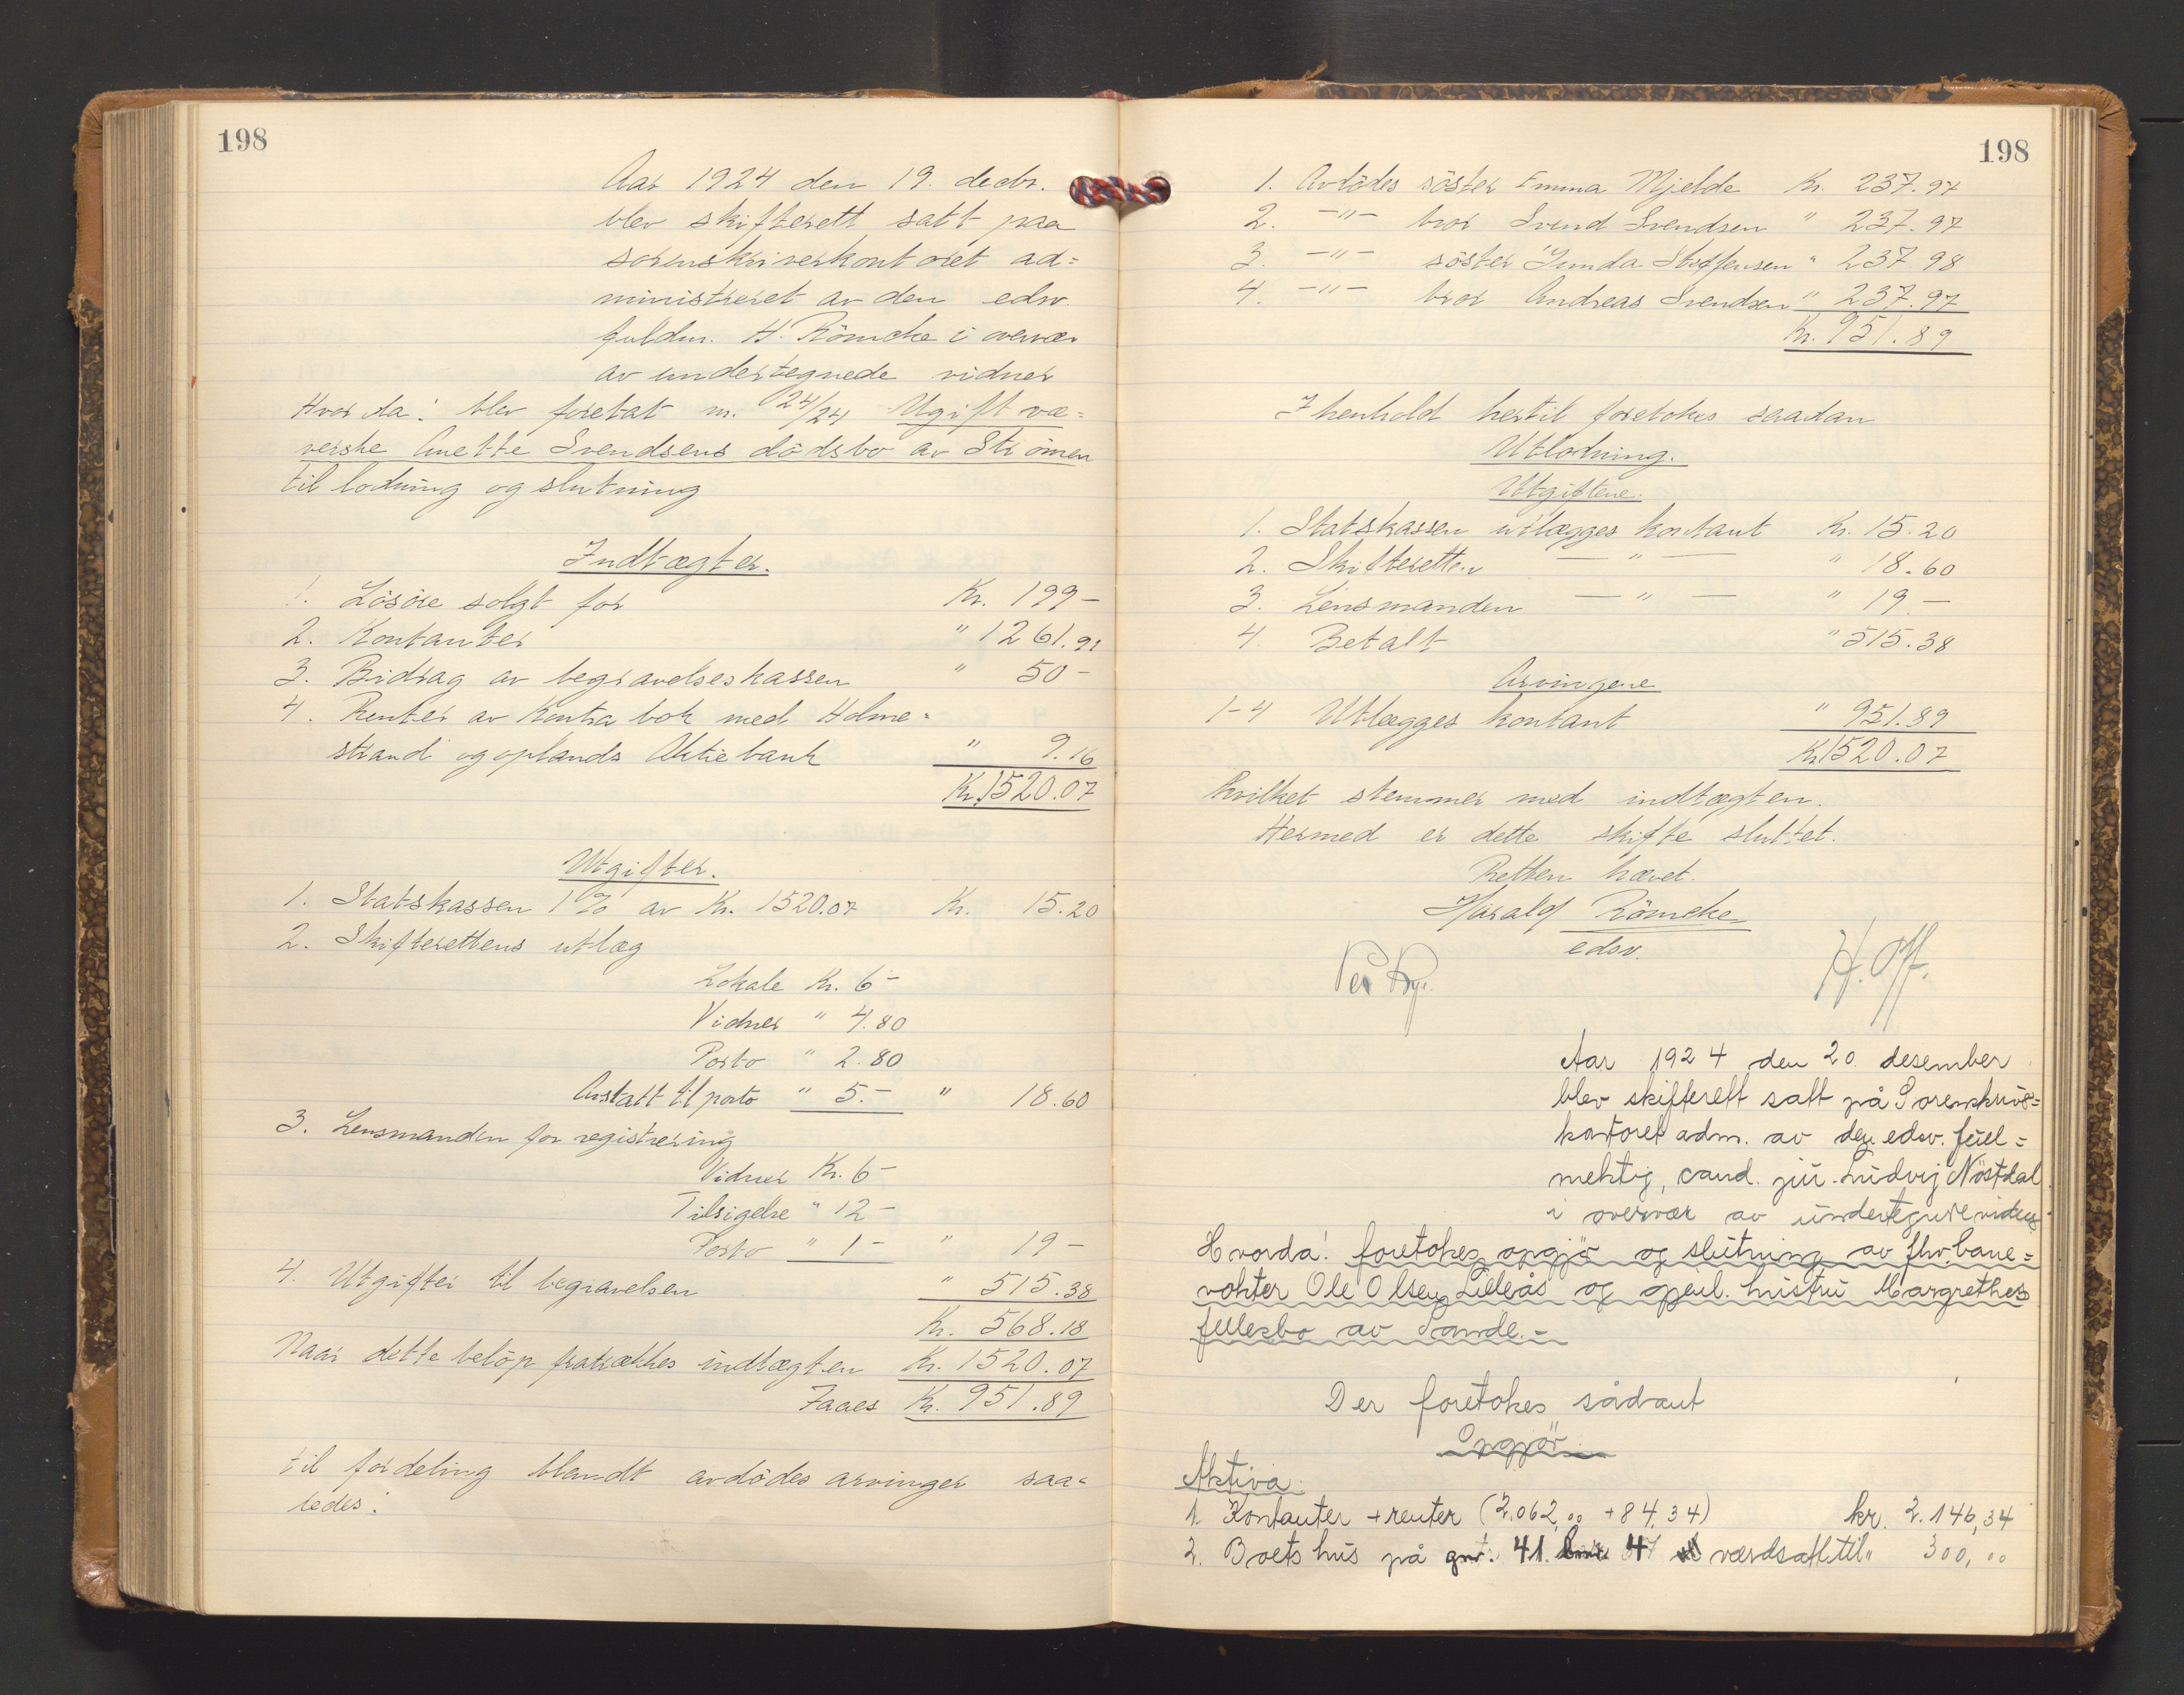 198
Aar 1924 den 19. decbr.
blev skifterett satt paa
sorenskriverkontoret ad=
ministreret av den edsv.
fuldm. H. Römcke i overvær
av undertegnede vidner
Hvor da: blev foretat nr. 24/24 Ugift væ=
verske Anette Svendsens dödsbo av Strömm
til lodning og slutning
Indtægter.
1. Lösöre solgt for Kr. 199-
2. Kontanter " 1261.91
3. Bidrag av begravelseskassen " 50-
4. Renter av Kontra bok med Holme=
strand og oplands Aktiebank " 9.16
Kr. 1520.07
Utgifter.
1. Statskassen 1% av Kr. 1520.07 Kr. 15.20
2. Skifterettens utlæg
Lokale Kr. 6-
Vidner " 4.80
Porto " 2.80
Avsatt til porto " 5.- " 18.60
3. Lensmanden for registrering
Vidner Kr. 6-
Tilsigelse " 12-
Porto " 1- " 19-
4. Utgifter til begravelsen " 515.38
Kr. 568.18
Naar dette belöp fratrækkes indtægten Kr. 1520.07
Faaes Kr. 951.89
til fordeling blandt avdödes arvinger saa=
ledes:
198
1. Avdödes söster Emma Mjelde Kr. 237.97
2. -"- bror Svend Svendsen " 237.97
3. -"- söster Gunda Steffensen " 237.98
4. -"- bror Andreas Svendsen " 237.97
Kr. 951.89
I henhold hertil foretokes saadan
Utlodning.
Utgiftene.
1. Statskassen utlægges kontant Kr. 15.20
2. Skifteretten - " - " 18.60
3. Lensmanden - " - " 19.-
4. Betalt " 515.38
Arvingene
1-4 Utlægges kontant " 951.89
Kr. 1520.07
Hvilket stemmer med indtægten.
Hermed er dette skifte sluttet.
Retten hævet.
Harald Römcke
edsv.
H. Off.
Aar 1924 den 20. desember
blev skifterett satt på Sorenskriver=
kontoret adm. av den edsv. full=
mektig, cand. jur. Ludvig Nöstdal
i overvær av undertegnede vidner
Hvorda! foretokes opgjör og slutning av fhv. bane=
vokter Ole Olsen Lilleås og gjenl. hustru Margrethes
fellesbo av Sande.-
Der foretokes sådant
Opgjör
Aktiva.
1. Kontanter + renter (2.062,00 + 84,34) kr. 2.146,34
2. Boets hus på gnr. 41. bnr. 4 værdsatt til " 300,00